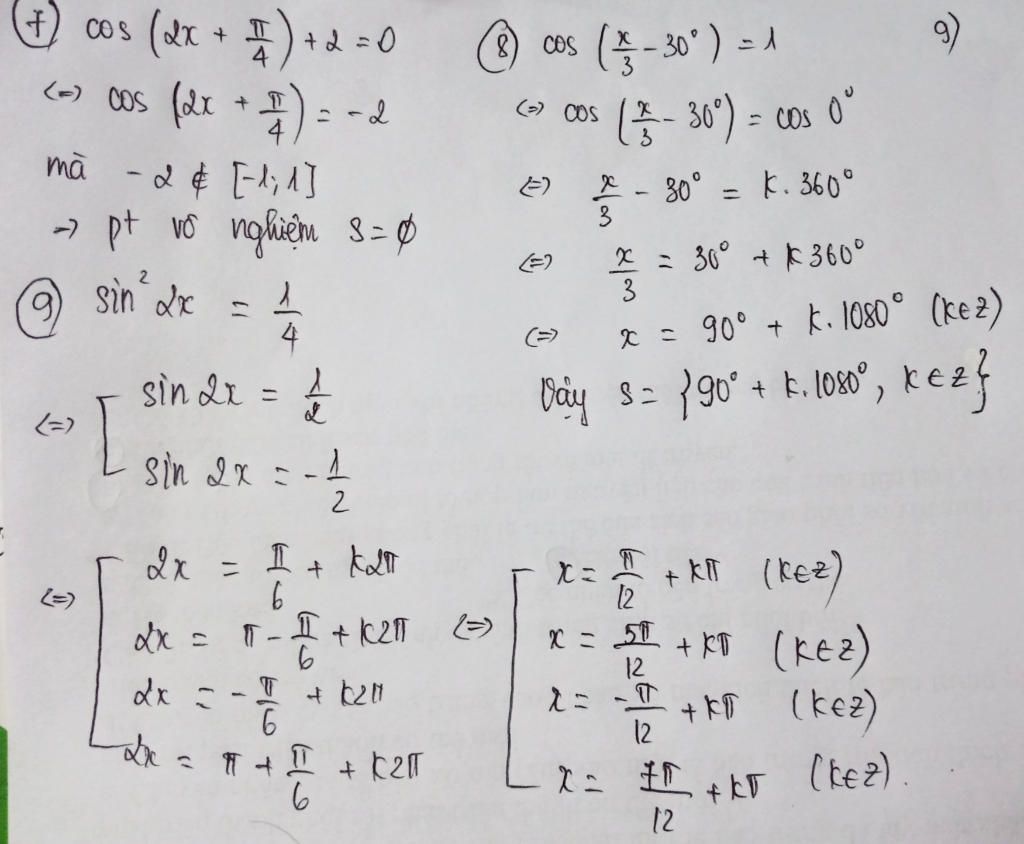 7) cos (2x + π/4) + 2 = 0
<=> cos (2x + π/4) = -2
mà -2 ∉ [-1; 1]
-> pt vô nghiệm S = ∅
8) cos (x/3 - 30°) = 1
<=> cos (x/3 - 30°) = cos 0°
<=> x/3 - 30° = k.360°
<=> x/3 = 30° + k360°
<=> x = 90° + k.1080° (k∈Z)
Vậy S = {90° + k.1080°, k∈Z}
9)
9) sin² 2x = 1/4
<=> [ sin 2x = 1/2
sin 2x = -1/2
<=> [ 2x = π/6 + k2π
2x = π - π/6 + k2π
2x = -π/6 + k2π
2x = π + π/6 + k2π
<=> [ x = π/12 + kπ (k∈Z)
x = 5π/12 + kπ (k∈Z)
x = -π/12 + kπ (k∈Z)
x = 7π/12 + kπ (k∈Z).